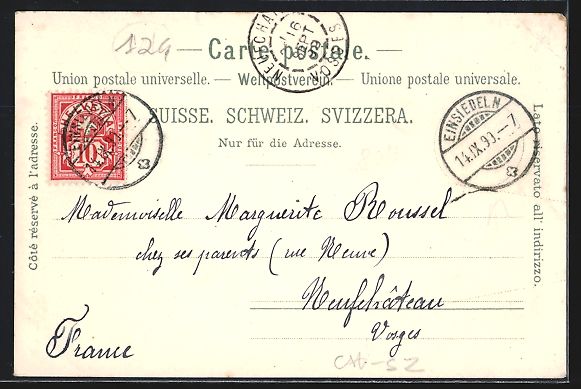 129
Carte postale.
Union postale universelle. — Weltpostverein. — Unione postale universale.
SUISSE. SCHWEIZ. SVIZZERA.
Nur für die Adresse.
Côté réservé à l'adresse.
Lato riservato all' indirizzo.
10
EINSIEDELN
14.IX.99.–7
Mademoiselle Marguerite Roussel
chez ses parents (rue Neuve)
Neufchâteau
Vosges
France